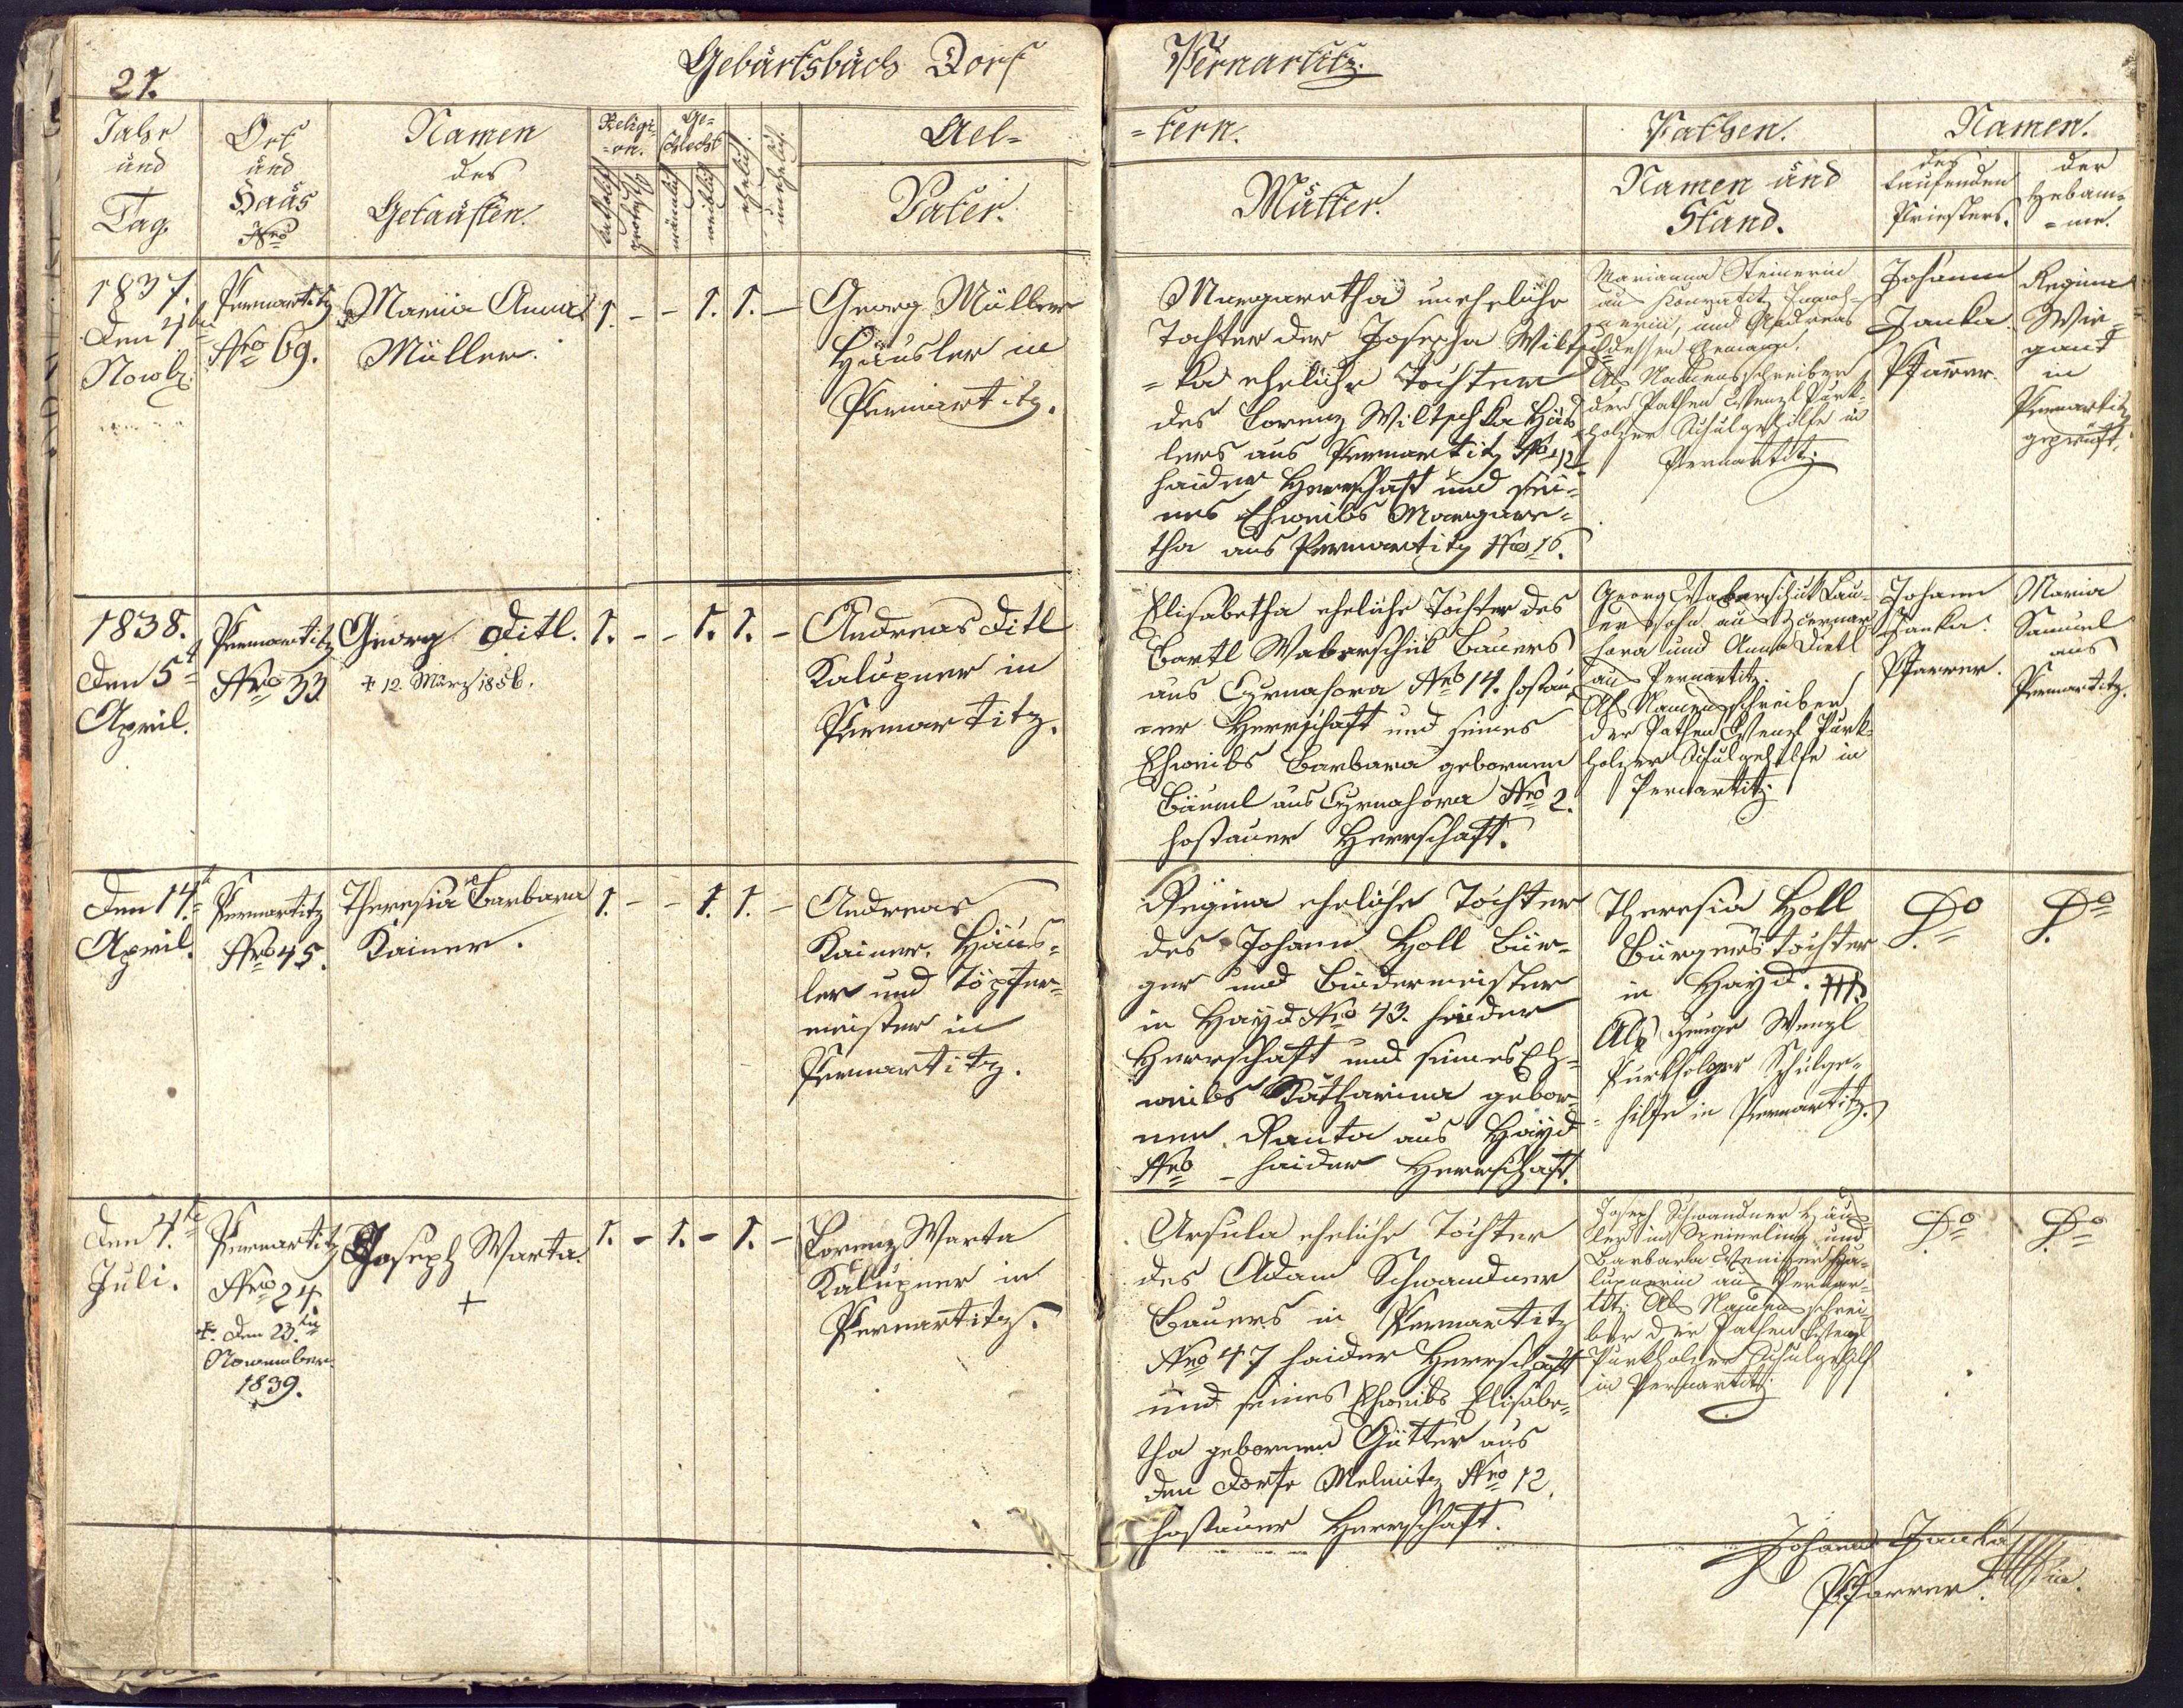 21.
Geburtsbuch Dorf Pernartitz.
Jahr
und
Tag.
Ort
und
Haus
Nro
Namen
des
Getauften.
Religi-
=on.
katholisch
protest.
Ge=
schlecht
männlich
weiblich
ehelich.
unehelich.
Ael=
=tern.
Vater.
Mutter.
Pathen.
Namen und
Stand.
Namen.
des
taufenden
Priesters.
der
Hebam=
=me.
1837.
den 21ten
Novbr.
Pernartitz
Nro 69.
Maria Anna
Müller.
1. - - 1. 1. -
Georg Müller
Häusler in
Pernartitz.
Margaretha uneheliche
Tochter der Josepha Wiltsch
=ka eheliche Tochter
des Lorenz Wiltschka Häus
lers aus Pernartitz Nro 12
haider Herrschaft und sei=
nes Eheweibs Margare=
tha aus Pernartitz Nro 16.
Marianna Steinerin
aus
und Andreas
dessen Ehemann.
Als Namensschreiber
der Pathen Wenzl Purk=
holzer Schulgehilfe in
Pernartitz
Johann
Janka
Pfarrer.
Regina
Wie=
gand
in
Pernartitz
geprüft.
1838.
den 5t
April.
Pernartitz
Nro 33
Georg Ditl.
+ 12. März 1856.
1. - - 1. 1. -
Andreas Ditl
Kalupner in
Pernartitz.
Elisabetha eheliche Tochter des
Bartl Waberschik Bauers
aus Cžrnahora Nro 14. hostau
=er Herrschaft und seines
Eheweibs Barbara gebornen
Bäuml aus Cžrnahora Nro 2.
hostauer Herrschaft.
Georg Waberschik Bau=
erssohn aus Tscherna
hora und Anna Dietl
aus Pernartitz.
Als Namensschreiber
der Pathen Wenzl Purk=
holzer Schulgehilfe in
Pernartitz
Johann
Janka.
Pfarrer.
Maria
Samuel
aus
Pernartitz.
den 14t
April.
Pernartitz
Nro 45.
Theresia Barbara
Kainer.
1. - - 1. 1. -
Andreas
Kainer. Häus=
ler und Töpfer=
meister in
Pernartitz.
Regina eheliche Tochter
des Johann Holl Bür=
ger und Bindermeister
in Hayd Nro 43. haider
Herrschaft und seines Eh=
weibs Katharina gebor=
nen Ranta aus Hayd
Nro - haider Herrschaft.
Theresia Holl
Bürgerstochter
in Hayd. +++
Als Zeuge Wenzl
Purkholzer Schulge=
=hilfe in Pernartitz.
Do
Do
den 4te
Juli.
Pernartitz
Nro 24.
+. den 23.ten
November
1839.
Joseph Warta.
+
1. - 1. - 1. -
Lorenz Warta
Kalupner in
Pernartitz.
Ursula eheliche Tochter
des Adam Schwandner
Bauers in Pernartitz
Nro 47 haider Herrschaft
und seines Eheweibs Elisabe=
tha gebornen Gütter aus
dem Dorfe Melmitz Nro 12.
hostauer Herrschaft.
Joseph Schwandner Häus
ler in Speierling und
Barbara Ka=
lupnerin aus Pernar=
titz. Als Namensschrei
ber der Pathen Wenzl
Purkholzer Schulgehilf
in Pernartitz
Do
Do
Johann Janka
Pfarrer.